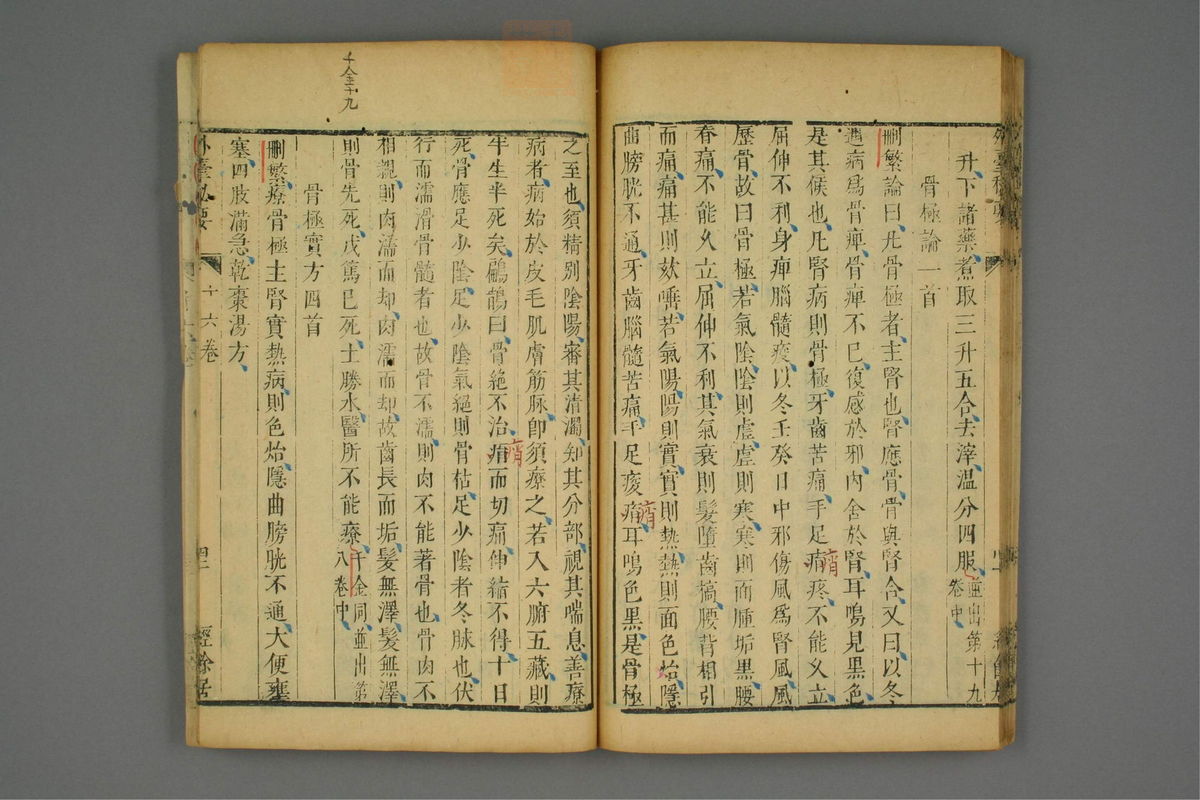 升下諸藥煮取三升五合去滓溫分四服
並出第十九
卷中
骨極論一首
刪繁論曰凡骨極者主腎也腎應骨骨與腎合又曰以冬
遇病爲骨痺骨痺不已復感於邪內舍於腎耳鳴見黑色
是其候也凡腎病則骨極牙齒苦痛手足㾓疼不能久立
痟
屈伸不利身痺腦髓痠以冬壬癸日中邪傷風爲腎風風
歷骨故曰骨極若氣陰陰則虛虛則寒寒則面腫垢黑腰
脊痛不能久立屈伸不利其氣衰則髮墮齒槁腰背相引
而痛痛甚則欬唾若氣陽陽則實實則熱熱則面色炲隱
曲膀胱不通牙齒腦髓苦痛手足痠㾓耳鳴色黑是骨極
痟
之至也須精別陰陽審其清濁知其分部視其喘息善療
病者病始於皮毛肌膚筋脉卽須療之若入六腑五藏則
半生半死矣鸝鵲曰骨絕不治㾓而切痛伸縮不得十日
痟
死骨應足少陰足少陰氣絕則骨枯足少陰者冬脉也伏
行而濡滑骨髓者也故骨不濡則肉不能著骨也骨肉不
相親則肉濡而却肉濡而却故齒長而垢髮無澤髮無澤
則骨先死戊篤巳死土勝水醫所不能療
千金同並出第
八卷中
骨極實方四首
刪繁療骨極主腎實熱病則色炲隱曲膀胱不通大便壅
塞四肢滿急乾棗湯方
外臺祕要
十六卷
經餘居
千金十九